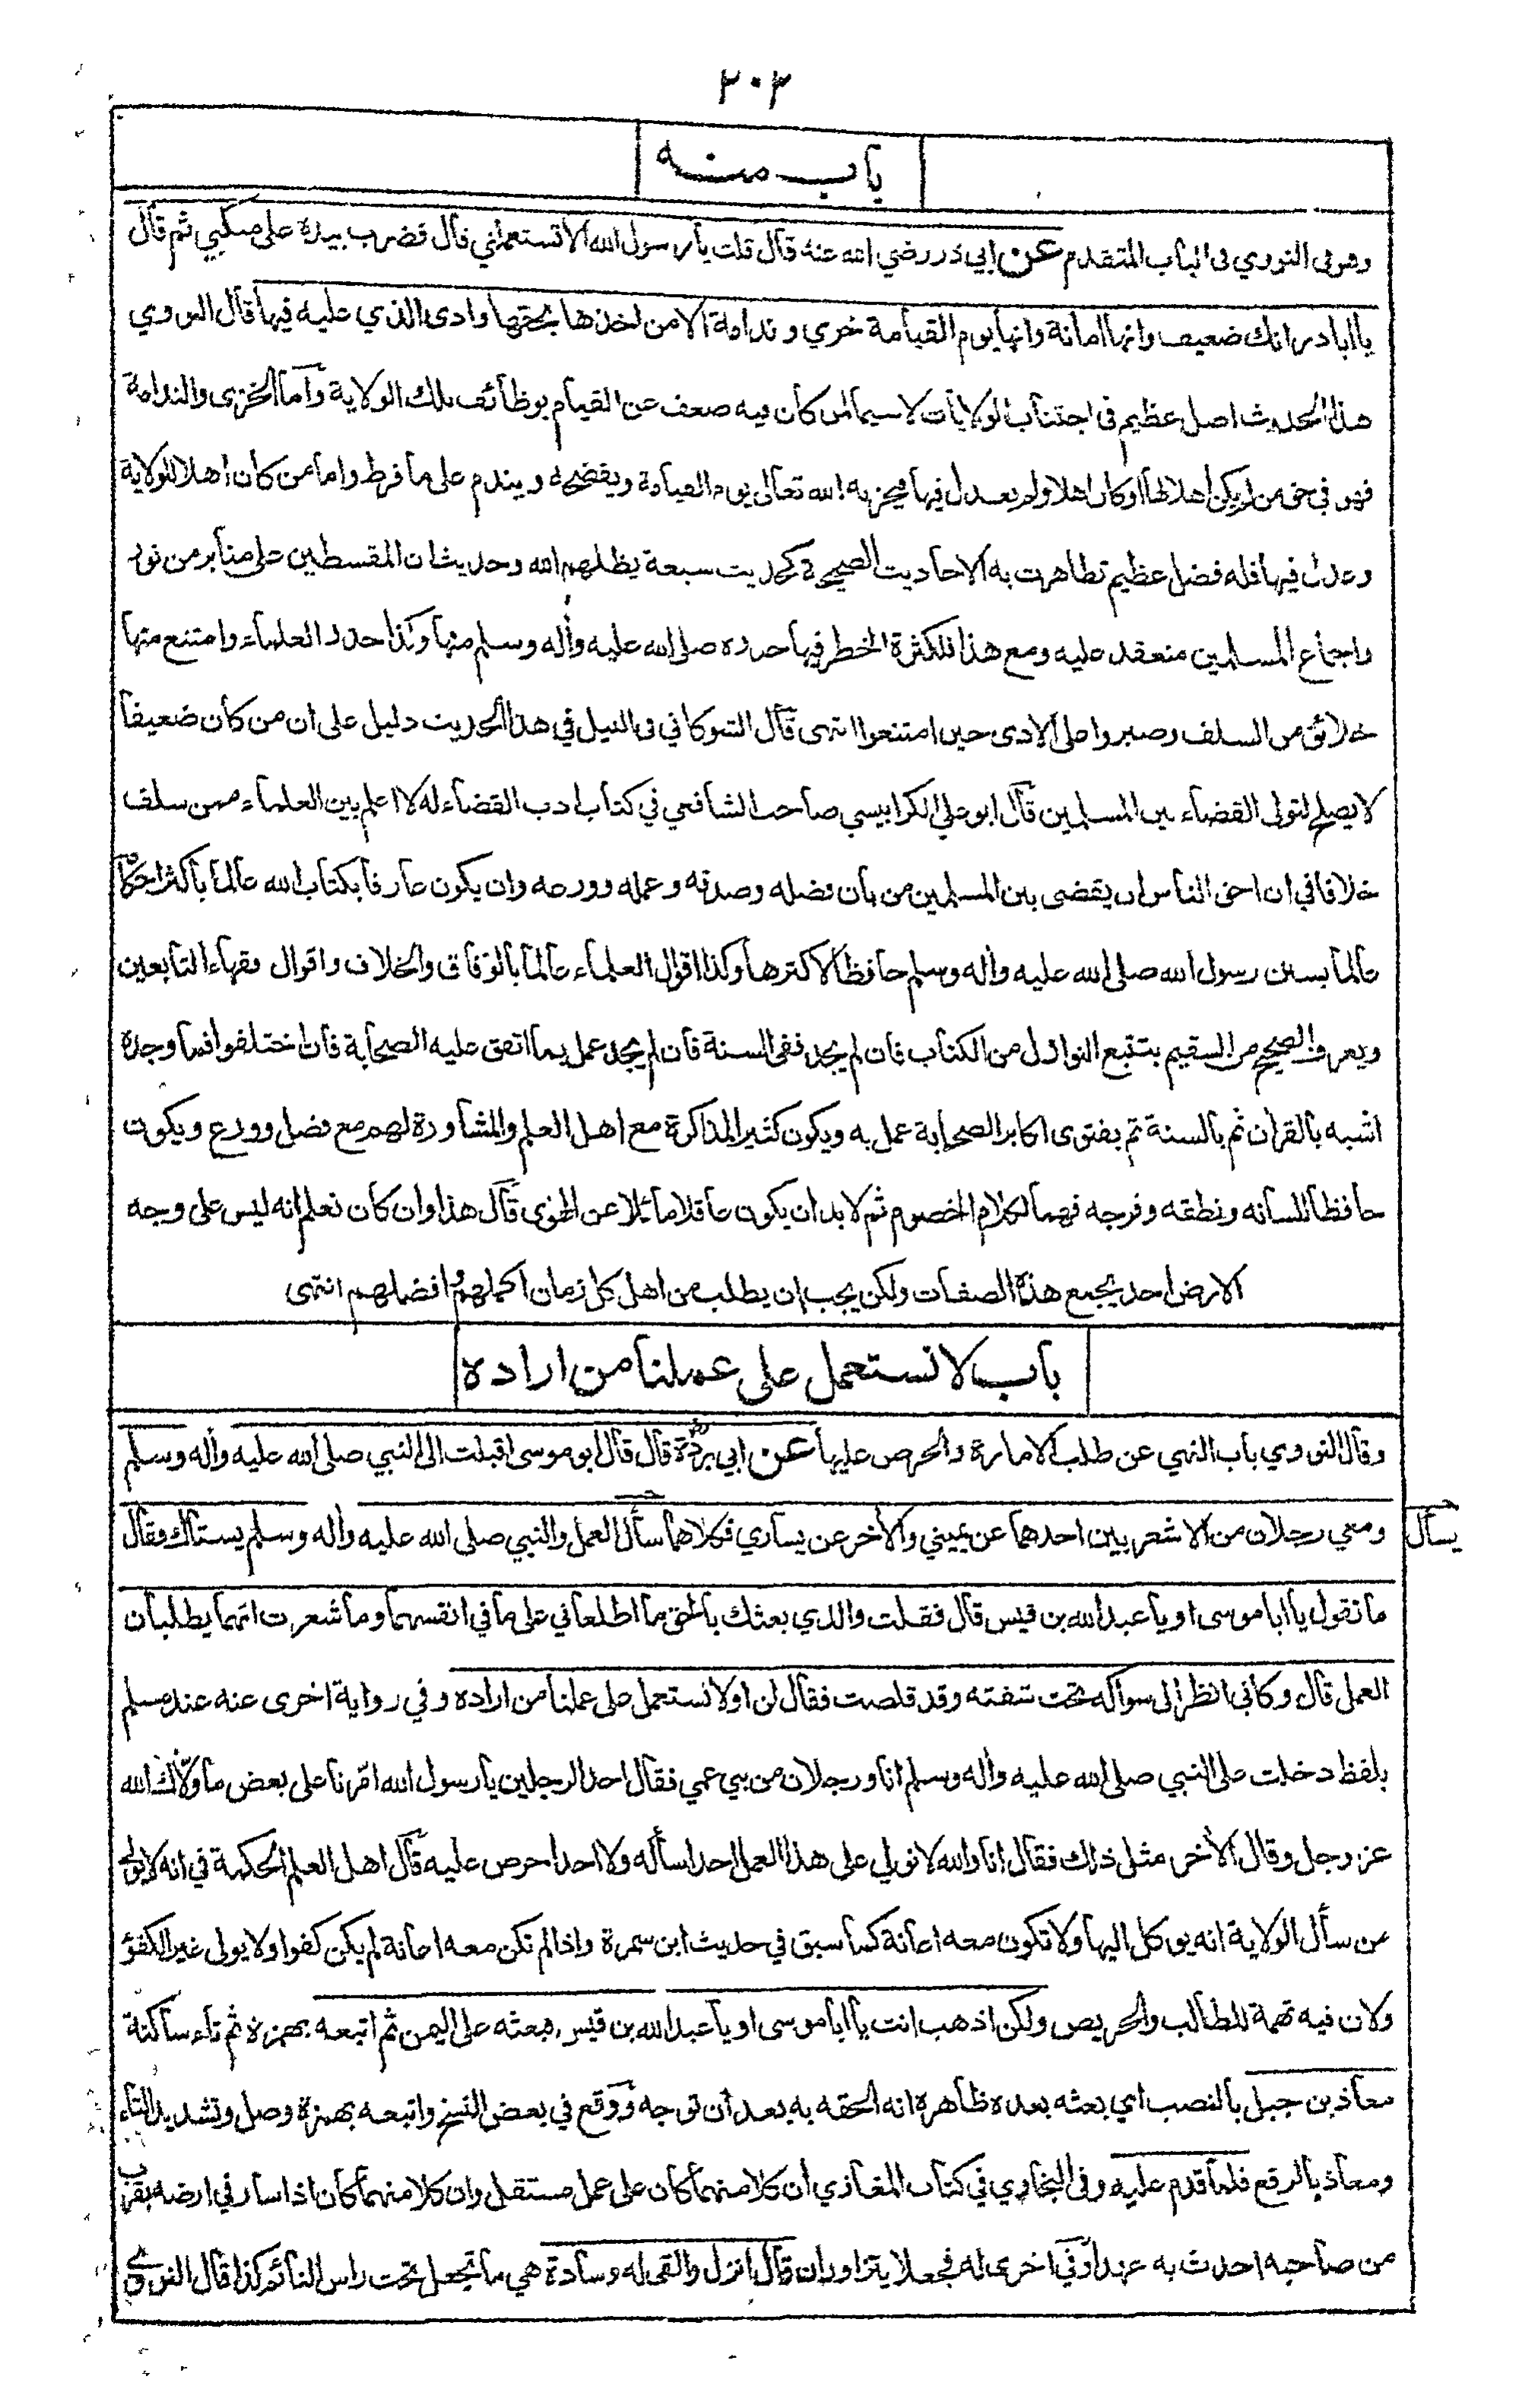 ٣٠٣
باب منه
وهو في النووي في الباب المتقدم عن ابي ذر رضي الله عنه قال قلت يا رسول الله الا تستعملني قال فضرب بيده على منكبي ثم قال
يا ابا ذر انك ضعيف وانها امانة وانها يوم القيامة خزي وندامة الا من اخذها بحقها وادى الذي عليه فيها قال النووي
هذا الحديث اصل عظيم في اجتناب الولايات لا سيما لمن كان فيه ضعف عن القيام بوظائف تلك الولاية واما الخزي والندامة
فهو في حق من لم يكن اهلا لها او كان اهلا ولم يعدل فيها فيخزيه الله تعالى يوم القيامة ويفضحه ويندم على ما فرط واما من كان اهلا للولاية
وعدل فيها فله فضل عظيم تظاهرت به الاحاديث الصحيحة كحديث سبعة يظلهم الله وحديث ان المقسطين على منابر من نور
واجماع المسلمين منعقد عليه ومع هذا فلكثرة الخطر فيها حذره صلى الله عليه واله وسلم منها وكذا حذر العلماء وامتنع منها
خلائق من السلف وصبروا على الاذى حين امتنعوا انتهى قال الشوكاني في النيل في هذا الحديث دليل على ان من كان ضعيفا
لا يصلح لتولى القضاء بين المسلمين قال ابو علي الكرابيسي صاحب الشافعي في كتاب ادب القضاء له لا اعلم بين العلماء ممن سلف
خلافا في ان احق الناس ان يقضى بين المسلمين من بان فضله وصدقه وعمله وورعه وان يكون عارفا بكتاب الله عالما باكثر احكامه
عالما بسنن رسول الله صلى الله عليه واله وسلم حافظا لاكثرها وكذا اقوال العلماء عالما بالوفاق والخلاف واقوال فقهاء التابعين
ويعرف الصحيح من السقيم يتتبع النوازل من الكتاب فان لم يجد ففى السنة فان لم يجد عمل بما اتفق عليه الصحابة فان اختلفوا فما وجده
اشبه بالقران ثم بالسنة ثم بفتوى اكابر الصحابة عمل به ويكون كثير المذاكرة مع اهل العلم والمشاورة لهم مع فضل وورع ويكون
حافظا للسانه ونطقه وفرجه فهما لكلام الخصوم ثم لا بد ان يكون عاقلا مائلا عن الهوى قال هذا وان كان نعلم انه ليس على وجه
الارض احد يجمع هذه الصفات ولكن يجب ان يطلب من اهل كل زمان اكملهم وافضلهم انتهى
باب لا نستعمل على عملنا من اراده
وقال النووي باب النهي عن طلب الامارة والحرص عليها عن ابي بردة قال قال ابو موسى اقبلت الى النبي صلى الله عليه واله وسلم
ومعي رجلان من الاشعريين احدهما عن يميني والأخر عن يساري فكلاهما سأل العمل والنبي صلى الله عليه واله وسلم يستاك فقال
يسأل
ما تقول يا ابا موسى او يا عبد الله بن قيس قال فقلت والذي بعثك بالحق ما اطلعاني على ما في انفسهما وما شعرت انهما يطلبان
العمل قال وكاني انظر الى سواكه تحت شفته وقد قلصت فقال لن او لا نستعمل على عملنا من اراده وفي رواية اخرى عنه عند مسلم
بلفظ دخلت على النبي صلى الله عليه واله وسلم انا ورجلان من بني عمي فقال احد الرجلين يا رسول الله امّرنا على بعض ما ولّاك الله
عز وجل وقال الأخر مثل ذلك فقال انا والله لا نولي على هذا العمل احدا سأله ولا احدا حرص عليه قال اهل العلم الحكمة في انه لا يولى
من سأل الولاية انه يوكل اليها ولا تكون معه اعانة كما سبق في حديث ابن سمرة واذا لم تكن معه اعانة لم يكن كفوا ولا يولى غير الكفؤ
ولان فيه تهمة للطالب والحريص ولكن اذهب انت يا ابا موسى او يا عبد الله بن قيس فبعثه على اليمن ثم اتبعه بهمزة ثم تاء ساكنة
معاذ بن جبل بالنصب اي بعثه بعده ظاهره انه الحقه به بعد ان توجه ووقع في بعض النسخ واتبعه بهمزة وصل وتشديد التاء
ومعاذ بالرفع فلما قدم عليه وفي البخاري في كتاب المغازي ان كلا منهما كان على عمل مستقل وان كلا منهما كان اذا سار في ارضه بقرب
من صاحبه احدث به عهدا وفي اخرى له فجعلا يتزاوران قال انزل والقى له وسادة هي ما تجعل تحت راس النائم كذا قال النووي